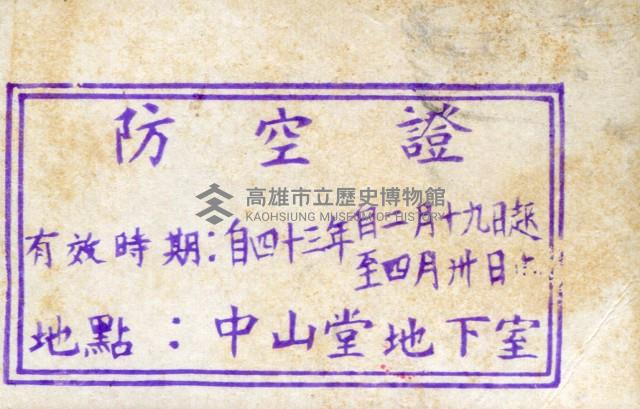 防空證
高雄市立歷史博物館
KAOHSIUNG MUSEUM OF HISTORY
有效時期：自四十三年自二月十九日起
至四月卅日止
地點：中山堂地下室